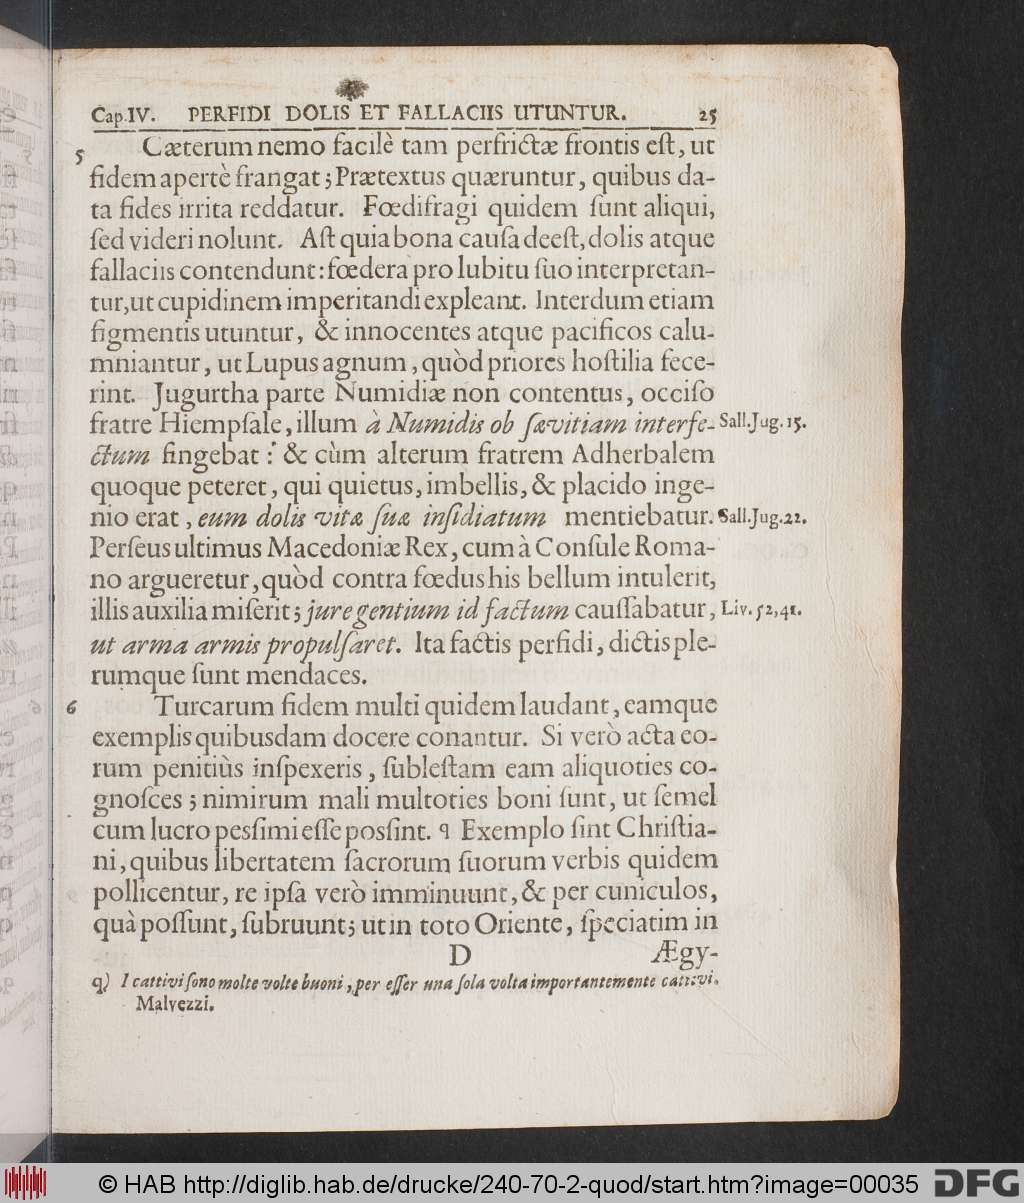 Cap. IV. PERFIDI DOLIS ET FALLACIIS UTUNTUR. 25
5 Cæterum nemo facilè tam perfrictæ frontis eſt, ut
fidem apertè frangat; Prætextus quæruntur, quibus da-
ta fides irrita reddatur. Fœdifragi quidem ſunt aliqui,
ſed videri nolunt. Aſt quia bona cauſa deeſt, dolis atque
fallaciis contendunt: fœdera pro lubitu ſuo interpretan-
tur, ut cupidinem imperitandi expleant. Interdum etiam
figmentis utuntur, & innocentes atque pacificos calu-
mniantur, ut Lupus agnum, quòd priores hoſtilia fece-
rint. Jugurtha parte Numidiæ non contentus, occiſo
fratre Hiempſale, illum à Numidis ob ſævitiam interfe- Sall. Jug. 15.
ctum fingebat: & cùm alterum fratrem Adherbalem
quoque peteret, qui quietus, imbellis, & placido inge-
nio erat, eum dolis vitæ ſuæ inſidiatum mentiebatur. Sall. Jug. 22.
Perſeus ultimus Macedoniæ Rex, cum à Conſule Roma-
no argueretur, quòd contra fœdus his bellum intulerit,
illis auxilia miſerit; jure gentium id factum cauſſabatur, Liv. 52, 41.
ut arma armis propulſaret. Ita factis perfidi, dictis ple-
rumque ſunt mendaces.
6 Turcarum fidem multi quidem laudant, eamque
exemplis quibusdam docere conantur. Si verò acta eo-
rum penitiùs inſpexeris, ſubleſtam eam aliquoties co-
gnoſces; nimirum mali multoties boni ſunt, ut ſemel
cum lucro pesſimi eſſe posſint. q Exemplo ſint Chriſtia-
ni, quibus libertatem ſacrorum ſuorum verbis quidem
pollicentur, re ipſa verò imminuunt, & per cuniculos,
quà poſſunt, ſubruunt; ut in toto Oriente, ſpeciatim in
D Ægy-
q) I cattivi ſono molte volte buoni, per eſſer una ſola volta importantemente cattivi.
Malvezzi.
© HAB http://diglib.hab.de/drucke/240-70-2-quod/start.htm?image=00035
DFG